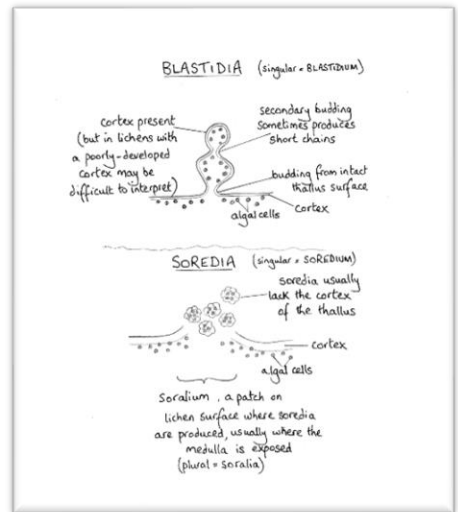 BLASTIDIA (singular = BLASTIDIUM)
cortex present
(but in lichens with
a poorly-developed
cortex may be
difficult to interpret)
secondary budding
sometimes produces
short chains
budding from intact
thallus surface
cortex
algal cells
SOREDIA (singular = SOREDIUM)
soredia usually
lack the cortex
of the thallus
cortex
algal cells
Soralium, a patch on
lichen surface where soredia
are produced, usually where the
medulla is exposed
(plural = soralia)